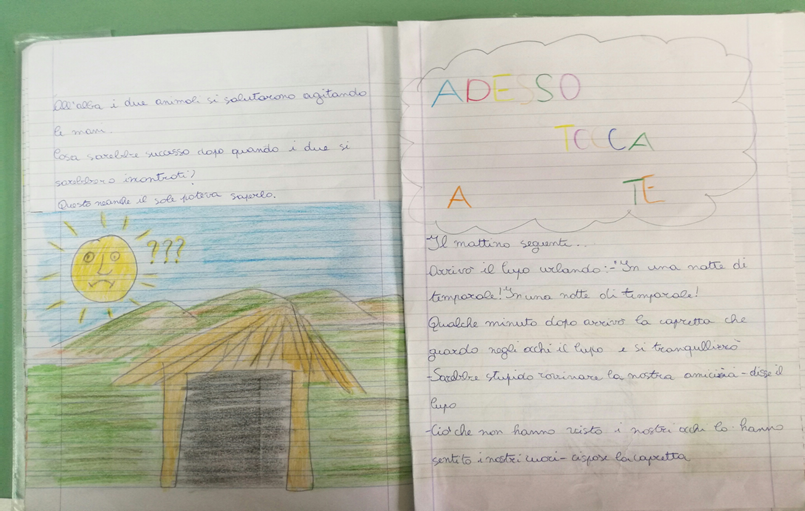 All'alba i due animali si salutarono agitando
le mani.
Cosa sarebbe successo dopo quando i due si
sarebbero incontrati?
Questo neanche il sole poteva saperlo.
???
ADESSO
TOCCA
A TE
Il mattino seguente...
Arrivò il lupo urlando:-"In una notte di
temporale!"In una notte di temporale!
Qualche minuto dopo arrivò la capretta che
guardò negli occhi il lupo e si tranquillizzò
-Sarebbe stupido rovinare la nostra amicizia-disse il
lupo
-Ciò che non hanno visto i nostri occhi lo hanno
sentito i nostri cuori-rispose la capretta